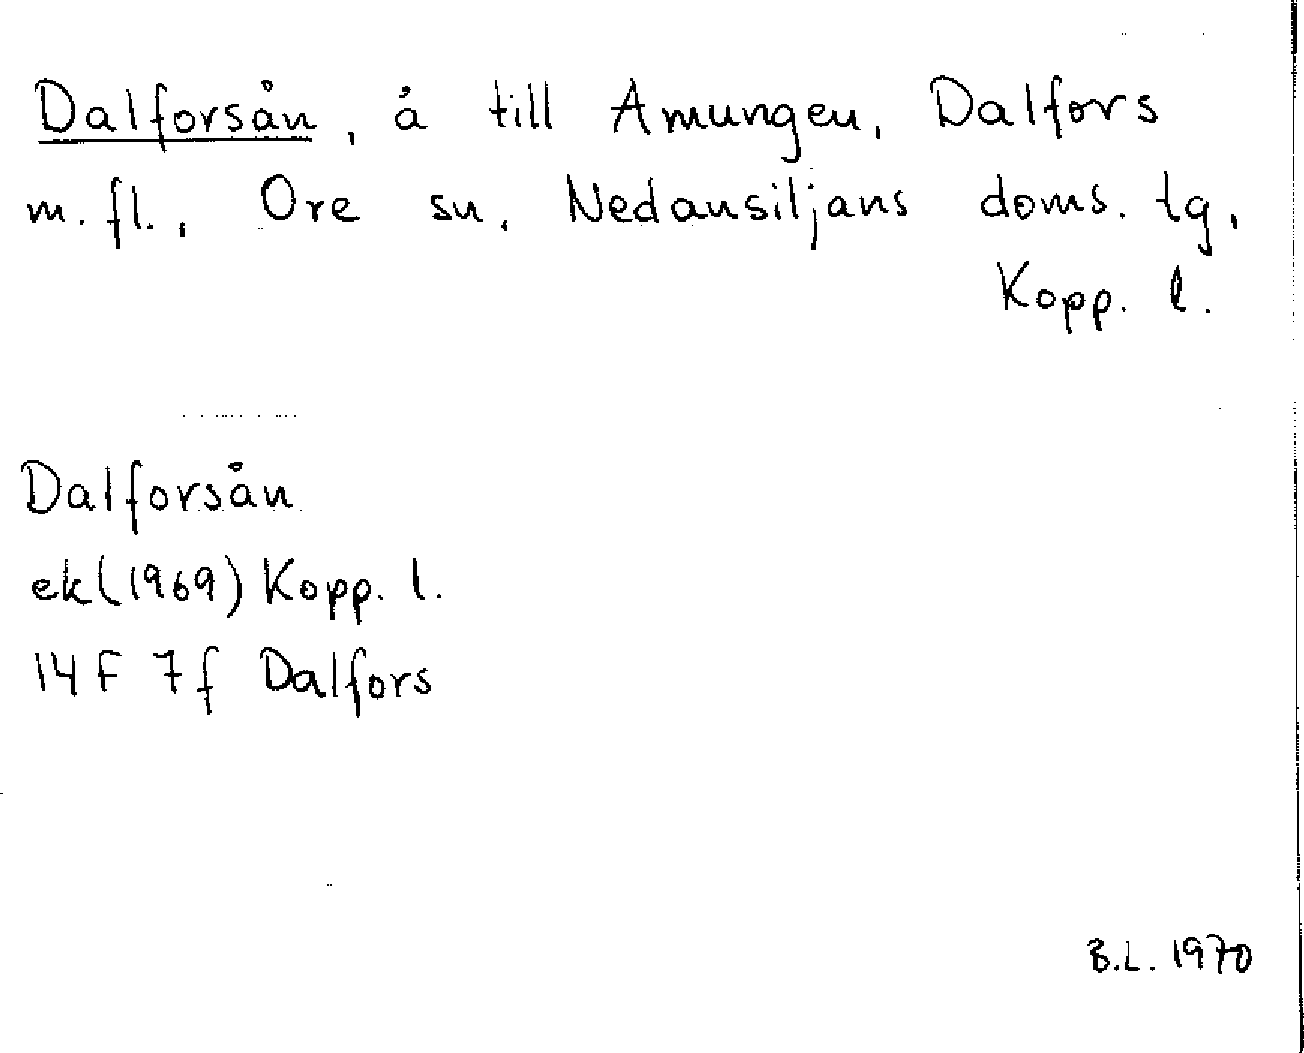 Dalforsån, å till Amungen, Dalfors
m. fl., Ore sn, Nedansiljans doms. tg,
Kopp. l.
Dalforsån
ek (1969) Kopp. l.
14F 7f Dalfors
B.L. 1970